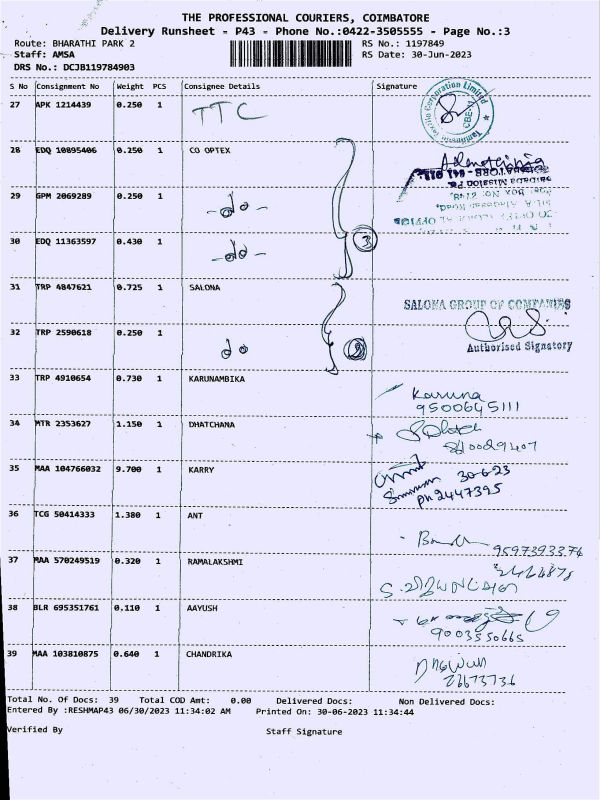 THE PROFESSIONAL COURIERS, COIMBATORE
Delivery Runsheet - P43 - Phone No.:0422-3505555 - Page No.:3
Route: BHARATHI PARK 2 RS No.: 1197849
Staff: AMSA RS Date: 30-Jun-2023
DRS No.: DCJB119784903
S No Consignment No Weight PCS Consignee Details Signature
27 APK 1214439 0.250 1 TTC
28 EDQ 10895406 0.250 1 CO OPTEX
29 GPM 2069289 0.250 1 -do-
30 EDQ 11363597 0.430 1 -do- 3
31 TRP 4847621 0.725 1 SALONA SALONA GROUP OF COMPANIES
32 TRP 2590618 0.250 1 do Authorised Signatory
33 TRP 4910654 0.730 1 KARUNAMBIKA Karuna
9500645111
34 MTR 2353627 1.150 1 DHATCHANA
35 MAA 104766032 9.700 1 KARRY 30-6-23
ph 2447395
36 TCG 50414333 1.380 1 ANT
9597393376
37 MAA 570249519 0.320 1 RAMALAKSHMI
38 BLR 695351761 0.110 1 AAYUSH
9003550665
39 MAA 103810875 0.640 1 CHANDRIKA
Total No. Of Docs: 39 Total COD Amt: 0.00 Delivered Docs: Non Delivered Docs:
Entered By :RESHMAP43 06/30/2023 11:34:02 AM Printed On: 30-06-2023 11:34:44
Verified By Staff Signature